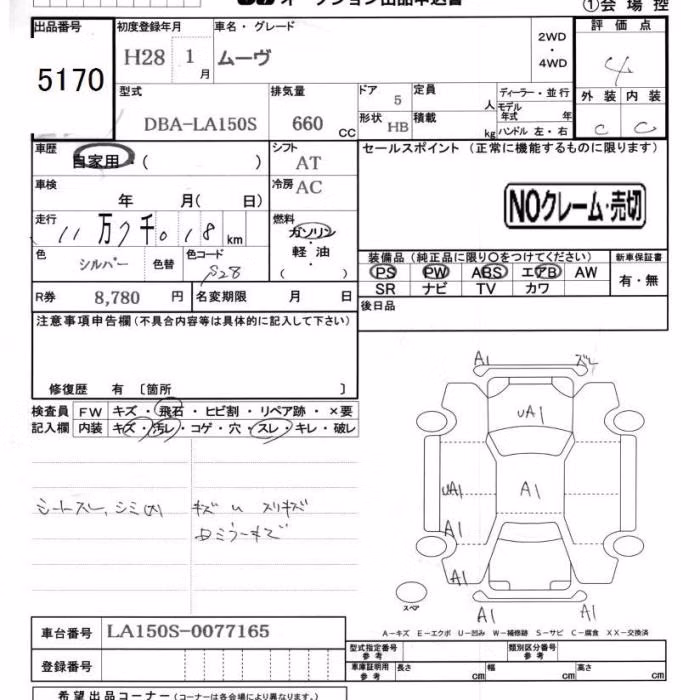 オークション出品申込書
①会場控
出品番号
5170
初度登録年月
H28 1月
車名・グレード
ムーヴ
2WD
・
4WD
評価点
4
外装 内装
C C
型式
DBA-LA150S
排気量
660 CC
ドア 5
形状 HB
定員 人
積載 kg
ディーラー・並行
モデル年式 年
ハンドル 左・右
車歴
自家用・( )
シフト AT
冷房 AC
車検
年 月( 日)
走行
11万7千018km
燃料
ガソリン
軽油
( )
色 シルバー
色替
色コード S28
R券 8,780 円
名変期限 月 日
セールスポイント (正常に機能するものに限ります)
NOクレーム・売切
装備品 (純正品に限り○をつけてください)
PS PW ABS エアB AW
SR ナビ TV カワ
新車保証書
有・無
後日品
注意事項申告欄 (不具合内容等は具体的に記入して下さい)
修復歴 有 〔箇所 〕
検査員 FW キズ・飛石・ヒビ割・リペア跡・×要
記入欄 内装 キズ・汚レ・コゲ・穴・スレ・キレ・破レ
シートスレ、シミ(大)
キズ U スリキズ
ロミラーキズ
A1 ズレ
UA1
UA1 A1
A1
A1
A1 A1
スペア
A-キズ E-エクボ U-凹み W-補修跡 S-サビ C-腐食 XX-交換済
車台番号 LA150S-0077165
登録番号
型式指定番号 参考
類別区分番号 参考
車庫証明用 参考 長さ cm 幅 cm 高さ cm
希望出品コーナー (コーナーは各会場により異なります。)